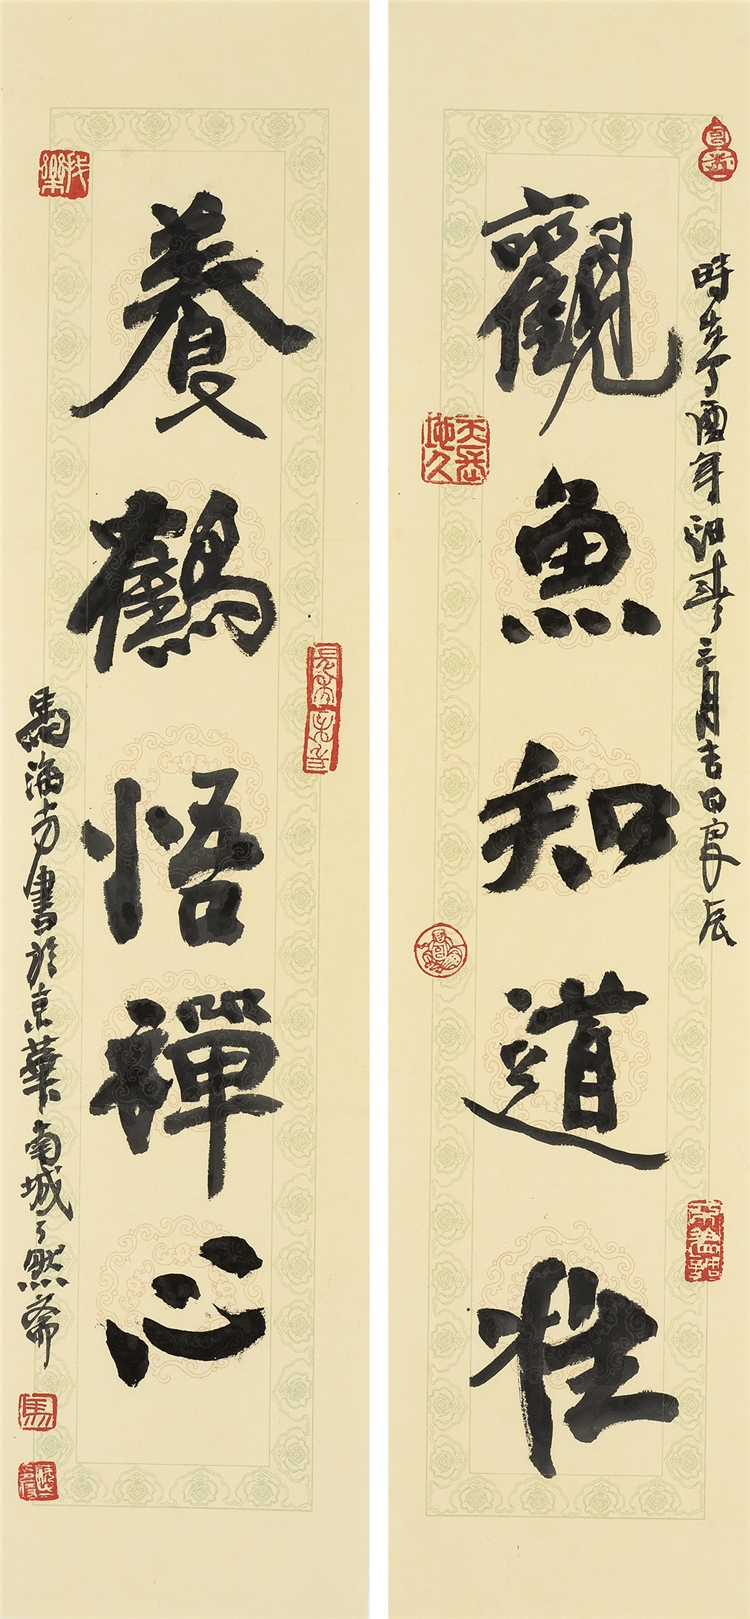 觀魚知道性
時在丁酉年初春三月吉日良辰
天長地久
養鶴悟禪心
馬海方書於京華南城了然齋
馬